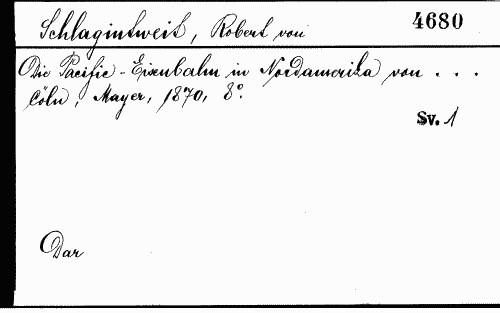 Schlagintweit, Robert von 4680
Die Pacific-Eisenbahn in Nordamerika von . . .
Cöln, Mayer, 1870, 8°.
Sv. 1
Dar